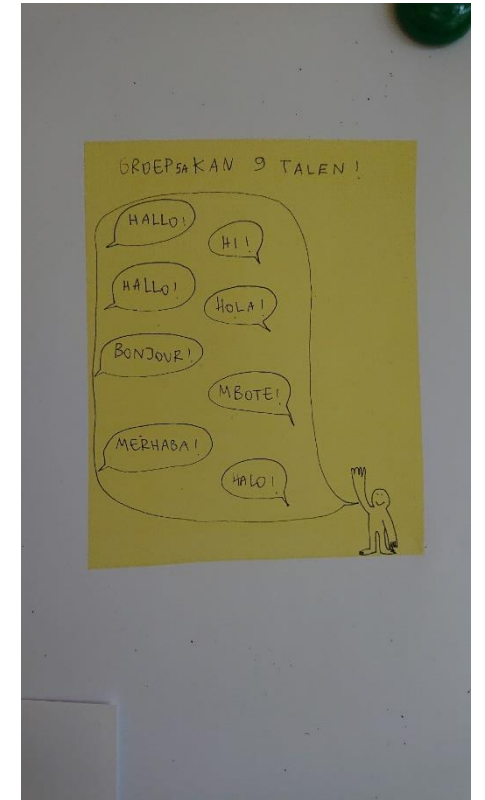 GROEP5A KAN 9 TALEN!
HALLO!
HI!
HALLO!
HOLA!
BONJOUR!
MBOTE!
MERHABA!
HALO!